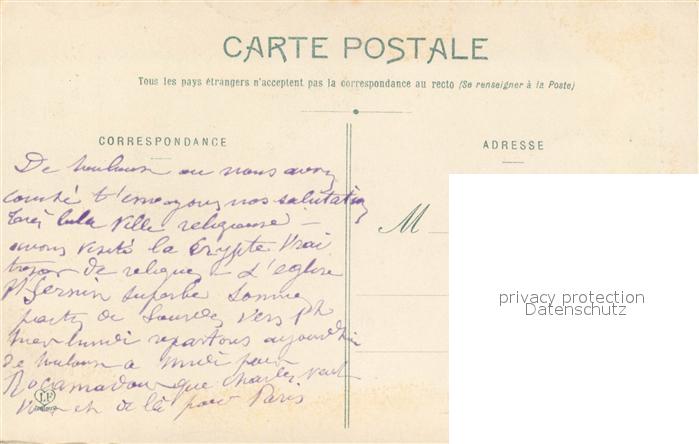 CARTE POSTALE
Tous les pays étrangers n'acceptent pas la correspondance au recto (Se renseigner à la Poste)
CORRESPONDANCE
ADRESSE
De Toulouse ou nous avons
t'envoyons nos salutations
ville religieuse -
avons visité la Crypte vrai
tresor de reliques - L'eglise
St Sernin superbe sommes
partis de Lourdes vers
repartons aujourd'hui
de Toulouse a midi pour
Rocamadour que Charles veut
voir et de là pour Paris
M
privacy protection
Datenschutz